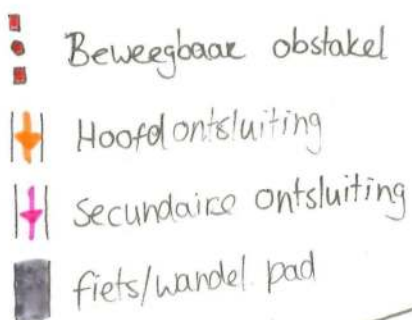 Beweegbaar obstakel
Hoofdontsluiting
Secundaire ontsluiting
fiets/wandel pad